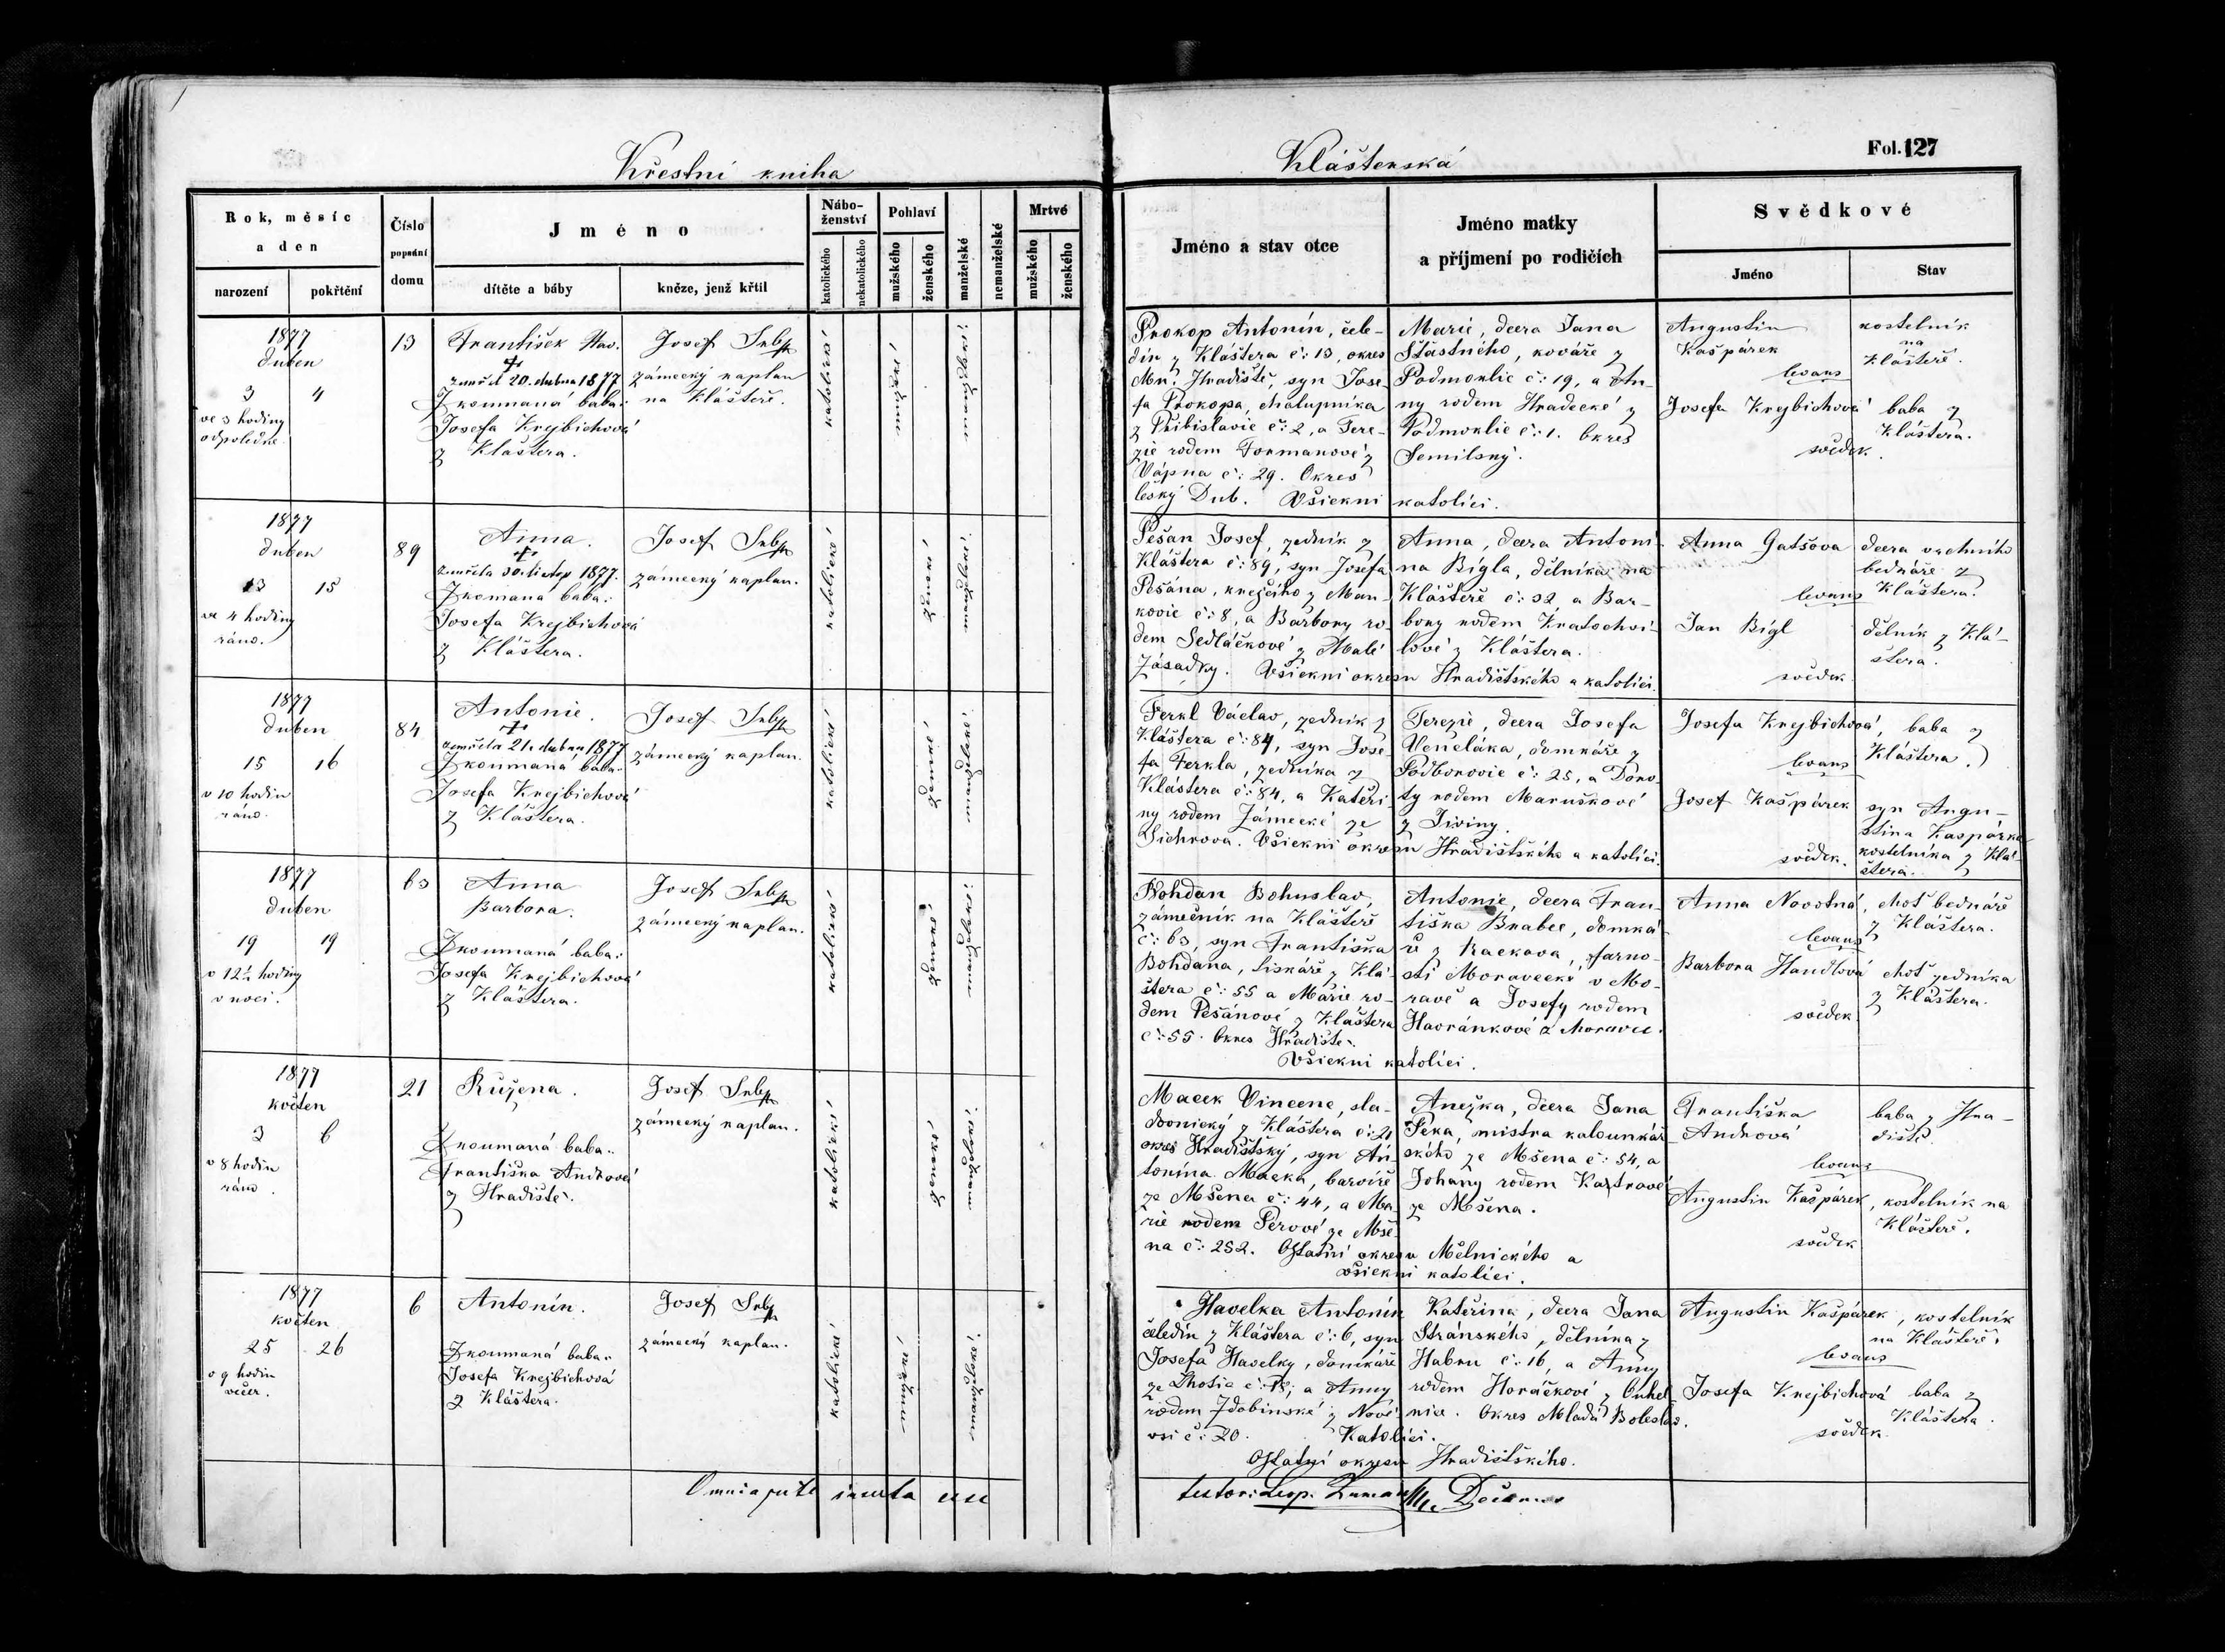 Křestní kniha
Klášterská
Fol. 127
Rok, měsíc
a den
narození
pokřtění
Číslo
popsání
domu
Jméno
dítěte a báby
kněze, jenž křtil
Nábo-
ženství
katolického
nekatolického
Pohlaví
mužského
ženského
manželské
nemanželské
Mrtvé
mužského
ženského
Jméno a stav otce
Jméno matky
a příjmení po rodičích
Svědkové
Jméno
Stav
1877
duben
3 4
ve 3 hodiny
odpoledne.
13
František
+
zemřel 20. dubna 1877
Zkoumaná baba:
Josefa Krejbichová
z Kláštera.
Josef
zámecký kaplan
na Klášteře.
katolické
mužské
manželské
Prokop Antonín, čele-
dín z Kláštera č: 13, okres
Mn. Hradiště, syn Jose-
fa Prokopa, chalupníka
z Přibislavic č: 2, a Tere-
zie rodem Formanové z
Vápna č: 29. Okres
český Dub. Všickni katolíci.
Marie, dcera Jana
Šťastného, kováře z
Podmoklic č: 19, a An-
ny rodem Hradecké z
Podmoklic č: 1. Okres
Semilský.
Augustin
Kašpárek
levans
Josefa Krejbichová
svědek.
kostelník
na
Klášteře.
baba z
Kláštera.
1877
duben
13 15
ve 4 hodiny
ráno.
89
Anna.
+
zemřela 30. listop 1877.
Zkomaná baba:
Josefa Krejbichová
z Kláštera.
Josef
zámecký kaplan.
katolické
ženské
manželské
Pešán Josef, zedník z
Kláštera č: 89, syn Josefa
Pešána, krejčího z Man-
kovic č: 8, a Barbory ro-
dem Sedláčkové z Malé
Zásadky. Všickni okresu Hradišťského a katolíci.
Anna, dcera Antoní-
na Bígla, dělníka na
Klášteře č: 32, a Bar-
bory rodem Kratochví-
lové z Kláštera.
Anna Gatšova
levans
Jan Bígl
svědek
dcera vrchního
bednáře z
Kláštera.
dělník z Klá-
štera.
1877
duben
15 16
v 10 hodin
ráno.
84
Antonie.
+
zemřela 21. dubna 1877
Zkoumaná baba:
Josefa Krejbichová
z Kláštera.
Josef
zámecký kaplan.
katolické
ženské
manželské
Ferkl Václav, zedník z
Kláštera č: 84, syn Jose-
fa Ferkla, zedníka z
Kláštera č: 84, a Kateři-
ny rodem Zámecké ze
Sichrova. Všickni okresu Hradišťského a katolíci.
Terezie, dcera Josefa
Vencláka, domkáře z
Podborovic č: 25, a Doro-
ty rodem Maruškové
z Jiviny.
Josefa Krejbichová,
levans
Josef Kašpárek
svědek.
baba z
Kláštera.
syn Augu-
stina Kašpárka
kostelníka z Klá-
štera.
1877
duben
19 19
v 12½ hodiny
v noci.
63
Anna
Barbora.
Zkoumaná baba:
Josefa Krejbichová
z Kláštera.
Josef
zámecký kaplan.
katolické
ženské
manželské
Bohdan Bohuslav,
zámečník na Klášteře
č: 63, syn Františka
Bohdana, liskáře z Klá-
štera č: 55 a Marie ro-
dem Pešánové z Kláštera
č: 55. Okres Hradiště.
Všickni katolíci.
Antonie, dcera Fran-
tiška Brabec, domká-
ře z Rackova, farno-
sti Moravecké v Mo-
ravě a Josefy rodem
Havránkové z Moravec.
Anna Novotná,
levans
Barbora Handlová
svědek
choť bednáře
z Kláštera.
choť zedníka
z Kláštera.
1877
květen
3 6
v 8 hodin
ráno.
21
Růžena.
Zkoumaná baba:
Františka Andrová
z Hradiště.
Josef
zámecký kaplan.
katolické
ženské
manželské
Macek Vincenc, sla-
dovnický z Kláštera č: 21
okres Hradišťský, syn An-
tonína Macka, barvíře
ze Mšena č: 44, a Ma-
rie rodem Pérové ze Mše-
na č: 252. Ostatní okresu Mělnického a
všickni katolíci.
Anežka, dcera Jana
Peka, mistra kalounkář-
ského ze Mšena č: 54, a
Johany rodem
ze Mšena.
Františka
Andrová
levans
Augustin Kašpárek,
svědek
baba z Hra-
diště.
kostelník na
Klášteře.
1877
květen
25 26
v 9 hodin
večer.
6
Antonín.
Zkoumaná baba:
Josefa Krejbichová
z Kláštera.
Josef
zámecký kaplan.
katolické
mužské
manželské
Havelka Antonín
čeledín z Kláštera č: 6, syn
Josefa Havelky, domkáře
ze Lhotic č: 18, a Anny
rodem Zdobinské z Nové
vsi č: 20. Katolíci.
Ostatní okresu Hradišťského.
Kateřina, dcera Jana
Stránského, dělníka z
Habru č: 16, a Anny
rodem Horáčkové z Ouhel-
nice. Okres Mladá Boleslav.
Augustin Kašpárek,
levans
Josefa Krejbichová
svědek
kostelník
na Klášteře.
baba z
Kláštera.
Omnia juste inserta esse
testor: